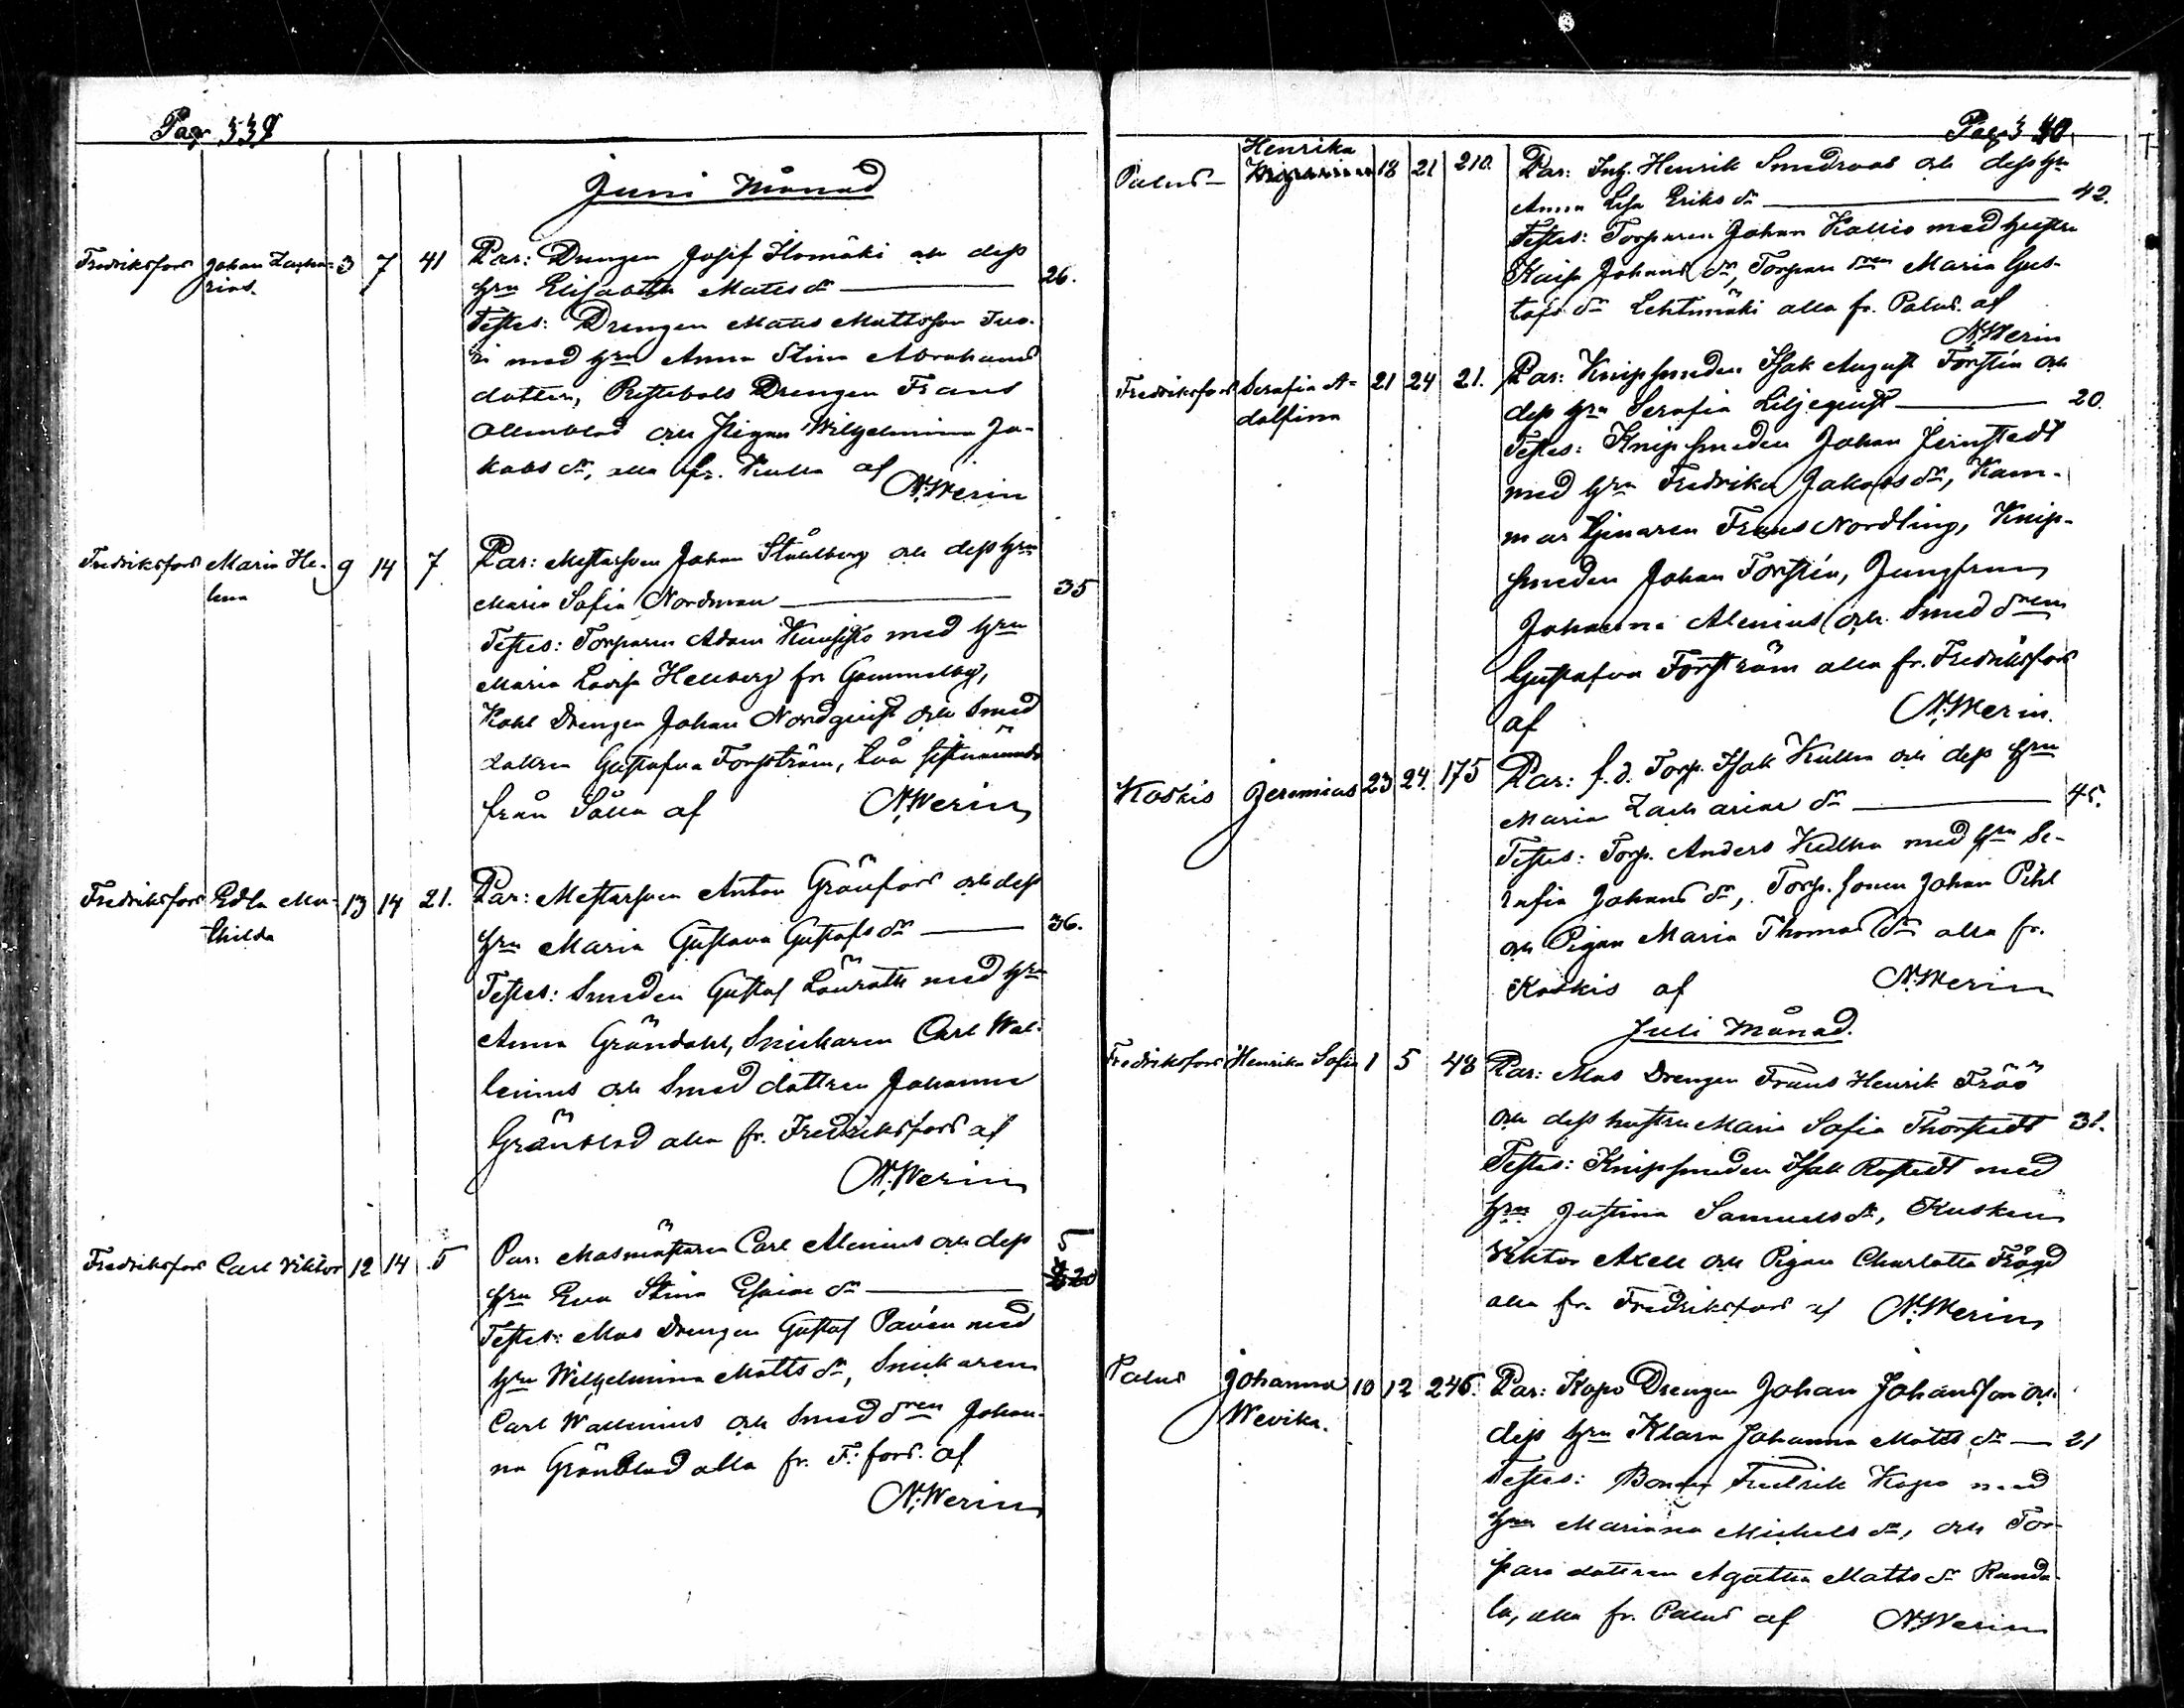 Pag. 339
Juni Månad
Fredriksfors Johan Zacha- 3 7 41 Par: Drengen Josef Ilomäki och dess
rias. hru Elisabeth Matts dr 26.
Testes: Drengen Matts Mattsson
med hru Anna Stina Abrahams
dotter, Drengen Frans
och Pigan Wilhelmina Ja-
kobs dr, alla fr. Kulla af
N. Werin
Fredriksfors Maria He- 9 14 7. Par: Mestarsven Johan Ståhlberg och dess hru
lena Maria Sofia Nordman 35
Testes: Torparen Adam med hru
Maria Lovisa Hellberg fr Gammelby,
Kohl Drengen Johan Nordqvist och Smed
dottren Gustafva Forsström, två sistnämnde
från af N. Werin
Fredriksfors Edla Ma- 13 14 21. Par: Mestarsven Anton Grönfors och dess
thilda hru Maria Gustava Gustafs dr 36.
Testes: Smeden Gustaf Lönroth med hru
Anna Gröndahl, Snickaren Carl Wal-
lenius och Smed dottren Johanna
Grönblad alla fr. Fredriksfors af
N. Werin
Fredriksfors Carl Viktor 12 14 5 Par: Masmästaren Carl Alenius och dess 5
hru Eva Stina Esaiae dr 20
Testes: Mas Drengen Gustaf Pavén med
hru Wilhelmina Matts dr, Snickaren
Carl Wallenius och Smed dren Johan-
na Grönblad alla fr. F: fors. af
N. Werin
Pag. 340
Henrika
Palus 18 21 210. Par: Inh. Henrik Smedroos och dess hru
Anna Lisa Eriks dr 42.
Testes: Torparen Johan Kallio med hustru
Kaisa Johans dr, Torpare dren Maria Gus-
tafs dr Lehtimäki alla fr. Palus. af
N. Werin
Fredriksfors Serafia A- 21 24 21. Par: Knipsmeden Isak August Forstén och
dolfina dess hru Serafia Liljeqvist 20.
Testes: Knipsmeden Johan Jernstedt
med hru Fredrika Jakobs dr, Kam-
martjenaren Frans Nordling, Knip-
smeden Johan Forstén, Jungfrun
Johanna Alenius och Smed dren
Gustafva Forsström alla fr. Fredriksfors
af N. Werin.
Koskis Jeremias 23 24. 175 Par: f.d. Torp. Isak Kulha och dess hru
Maria Zachariae dr 45.
Testes: Torp. Anders Kulha med hru Se-
rafia Johans dr, Torp. sonen Johan Pihl
och Pigan Maria Thomas dr alla fr.
Koskis af N. Werin
Juli Månad.
Fredriksfors Henrika Sofia 1 5 48 Par: Mas Drengen Frans Henrik Fröö
och dess hustru Maria Sofia Thorstedt 31.
Testes: Knipsmeden Isak Rostedt med
hru Justina Samuels dr, Kusken
Viktor Axell och Pigan Charlotta Frögd
alla fr. Fredriksfors af N. Werin
Palus Johanna 10 12 246. Par: Kopo Drengen Johan Johansson och
Wevika. dess hru Klara Johanna Matts dr 21
Testes: Bonden Fredrik Kopo med
hru Mariana Michels dr, och Tor-
pare dottren Agatha Matts dr Randa-
la, alla fr. Palus af N. Werin